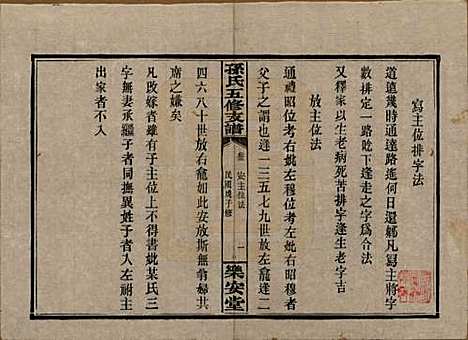 寫主位排字法
道遠幾時通達路遙何日還鄉凡寫主將字
數排定一路唸下逢走之字為合法
又釋家以生老病死苦排字逢生老字吉
放主位法
通禮昭位考右妣左穆位考左妣右昭穆者
父子之謂也逢一三五七九世放左龕逢二
孫氏五修支譜
安主位法
民國戊子修
一
樂安堂
四六八十世放右龕如此安放斯無翁婦共
席之嫌矣
凡改嫁者雖有子主位上不得書妣某氏三
字無妻承繼子者同撫異姓子者入左祔主
出家者不入